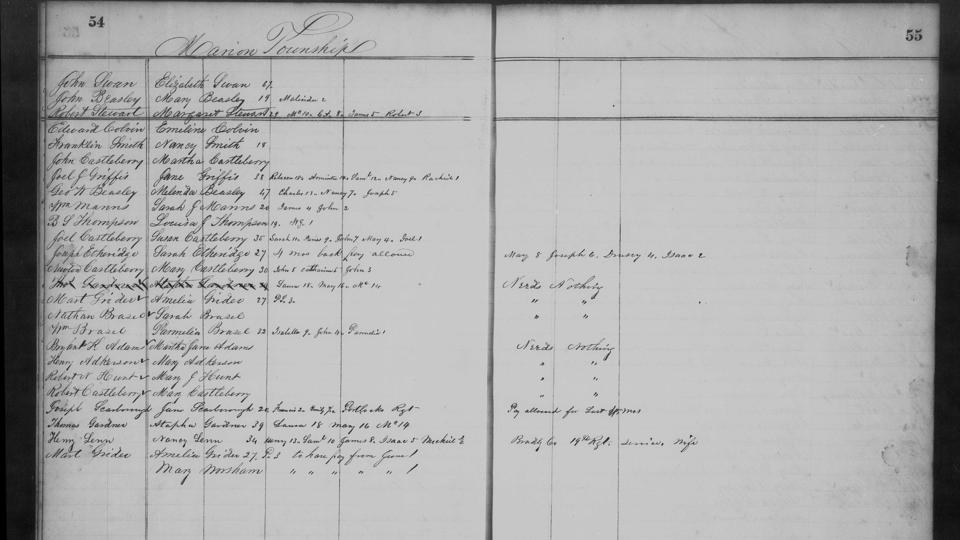 54
55
Marion Township
John Swan Elizabeth Swan 67
John Beasley Mary Beasley 19 Malinda 2
Robert Stewart Margaret Stewart 29 James 5 Robert 3
Edward Colvin Emeline Colvin
Franklin Smith Nancy Smith 18
John Castleberry Martha Castleberry
Joel J Griffis Jane Griffis 38 Nancy 9
Geo W Beasley Melinda Beasley 47 Charles 13 Nancy 7 Joseph 5
Wm Manns Sarah J Manns 20 James 4 John 2
B S Thompson Louisa J Thompson 19 1
Joel Castleberry Susan Castleberry 35 Sarah 11 9 John 7 May 4 Joel 1
Joseph Etheridge Sarah Etheridge 27 4 mos back pay allowed May 8 Joseph 6 Drury 4 Isaac 2
Castleberry Mary Castleberry 30 John 5 Catharine John 3
Thos Gardner Atapha Gardner 39 Laura 18 May 16 Mc 14 Needs Nothing
Mart Grider Amelia Grider 27 P.L. 3 " "
Nathan Brasel Sarah Brasel " "
Wm Brasel Parmelia Brasel 32 Isabella 9 John 4
Bryant K Adams Martha Jane Adams Needs Nothing
Henry Adkerson Mary Adkerson " "
Robert W Hunt Mary J Hunt " "
Robert Castleberry Mary Castleberry " "
Joseph Scarborough Jane Scarborough 22 Francis 2 Portlocks Rgt Pay allowed for Last mos
Thomas Gardner Atapha Gardner 39 Laura 18 May 16 Mc 14
Henry Linn Nancy Linn 34 Henry 13 Saml 10 James 8 Isaac 5 Bradly Co 19th Rgt. service Wife
Mart Grider Amelia Grider 27. P. 3 to have pay from June 1
Mary Worsham " " " " " 1